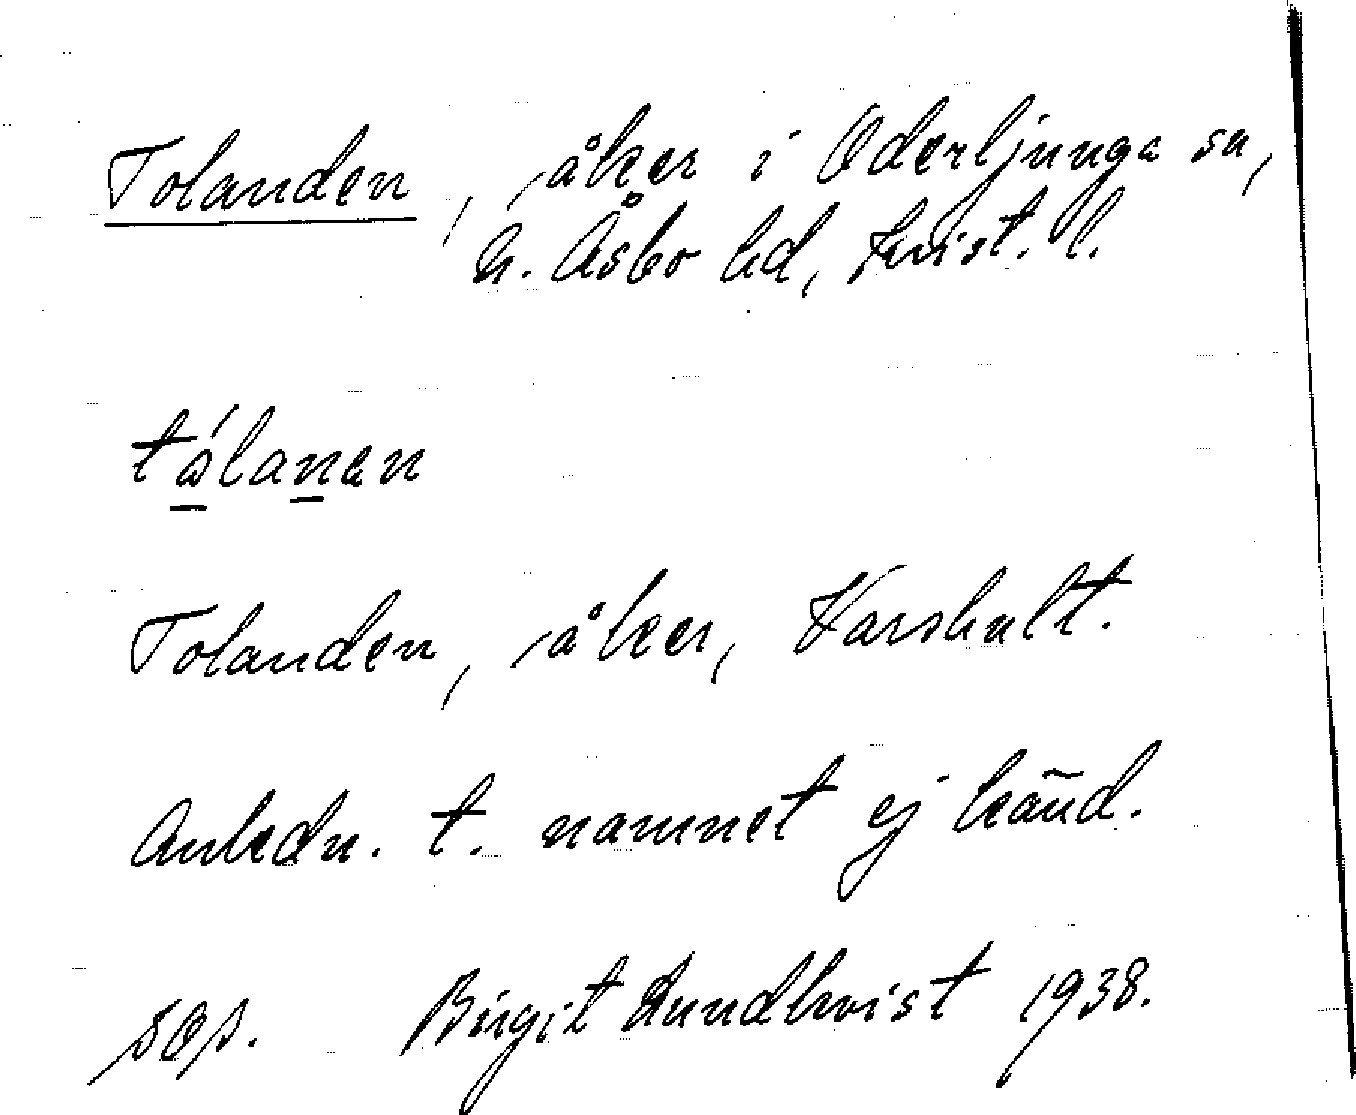 Tolanden, åker i Oderljunga sn,
N. Åsbo hd, Krist. l.
tålanen
Tolanden, åker, Varshult.
Anledn. t. namnet ej känd.
søs. Birgit Lundkvist 1938.